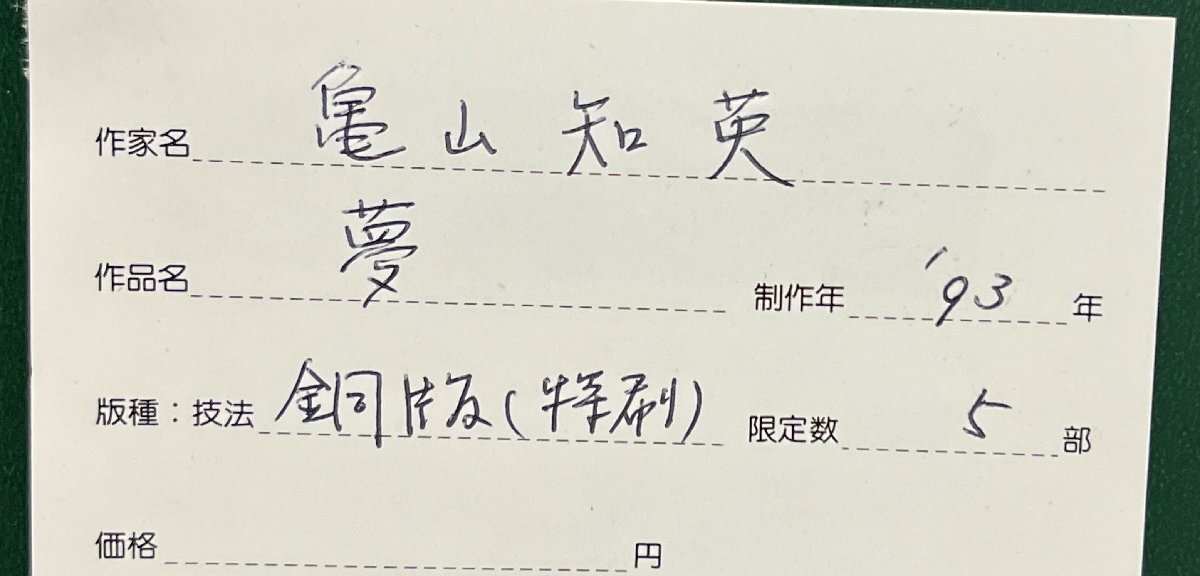 作家名 亀山知英
作品名 夢 制作年 '93 年
版種：技法 銅版(特刷) 限定数 5 部
価格 円